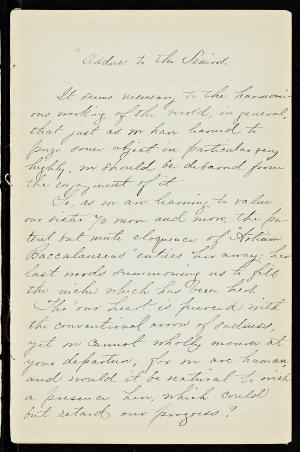 Address to the Seniors.
It seems necessary to the harmoni-
ous working of the world, in general,
that just as we have learned to
prize some object in particular very
highly, we should be debarred from
the enjoyment of it.
So, as we are learning to value
our sister '70 more and more, the po-
tent but mute eloquence of "Artium
Baccalaureus" entices her away; her
last words summoning us to fill
the niche which has been hers.
Tho' our heart is pierced with
the conventional arrow of sadness,
yet we cannot wholly mourn at
your departure, for we are human,
and would it be natural to wish
a presence here, which could
but retard our progress?